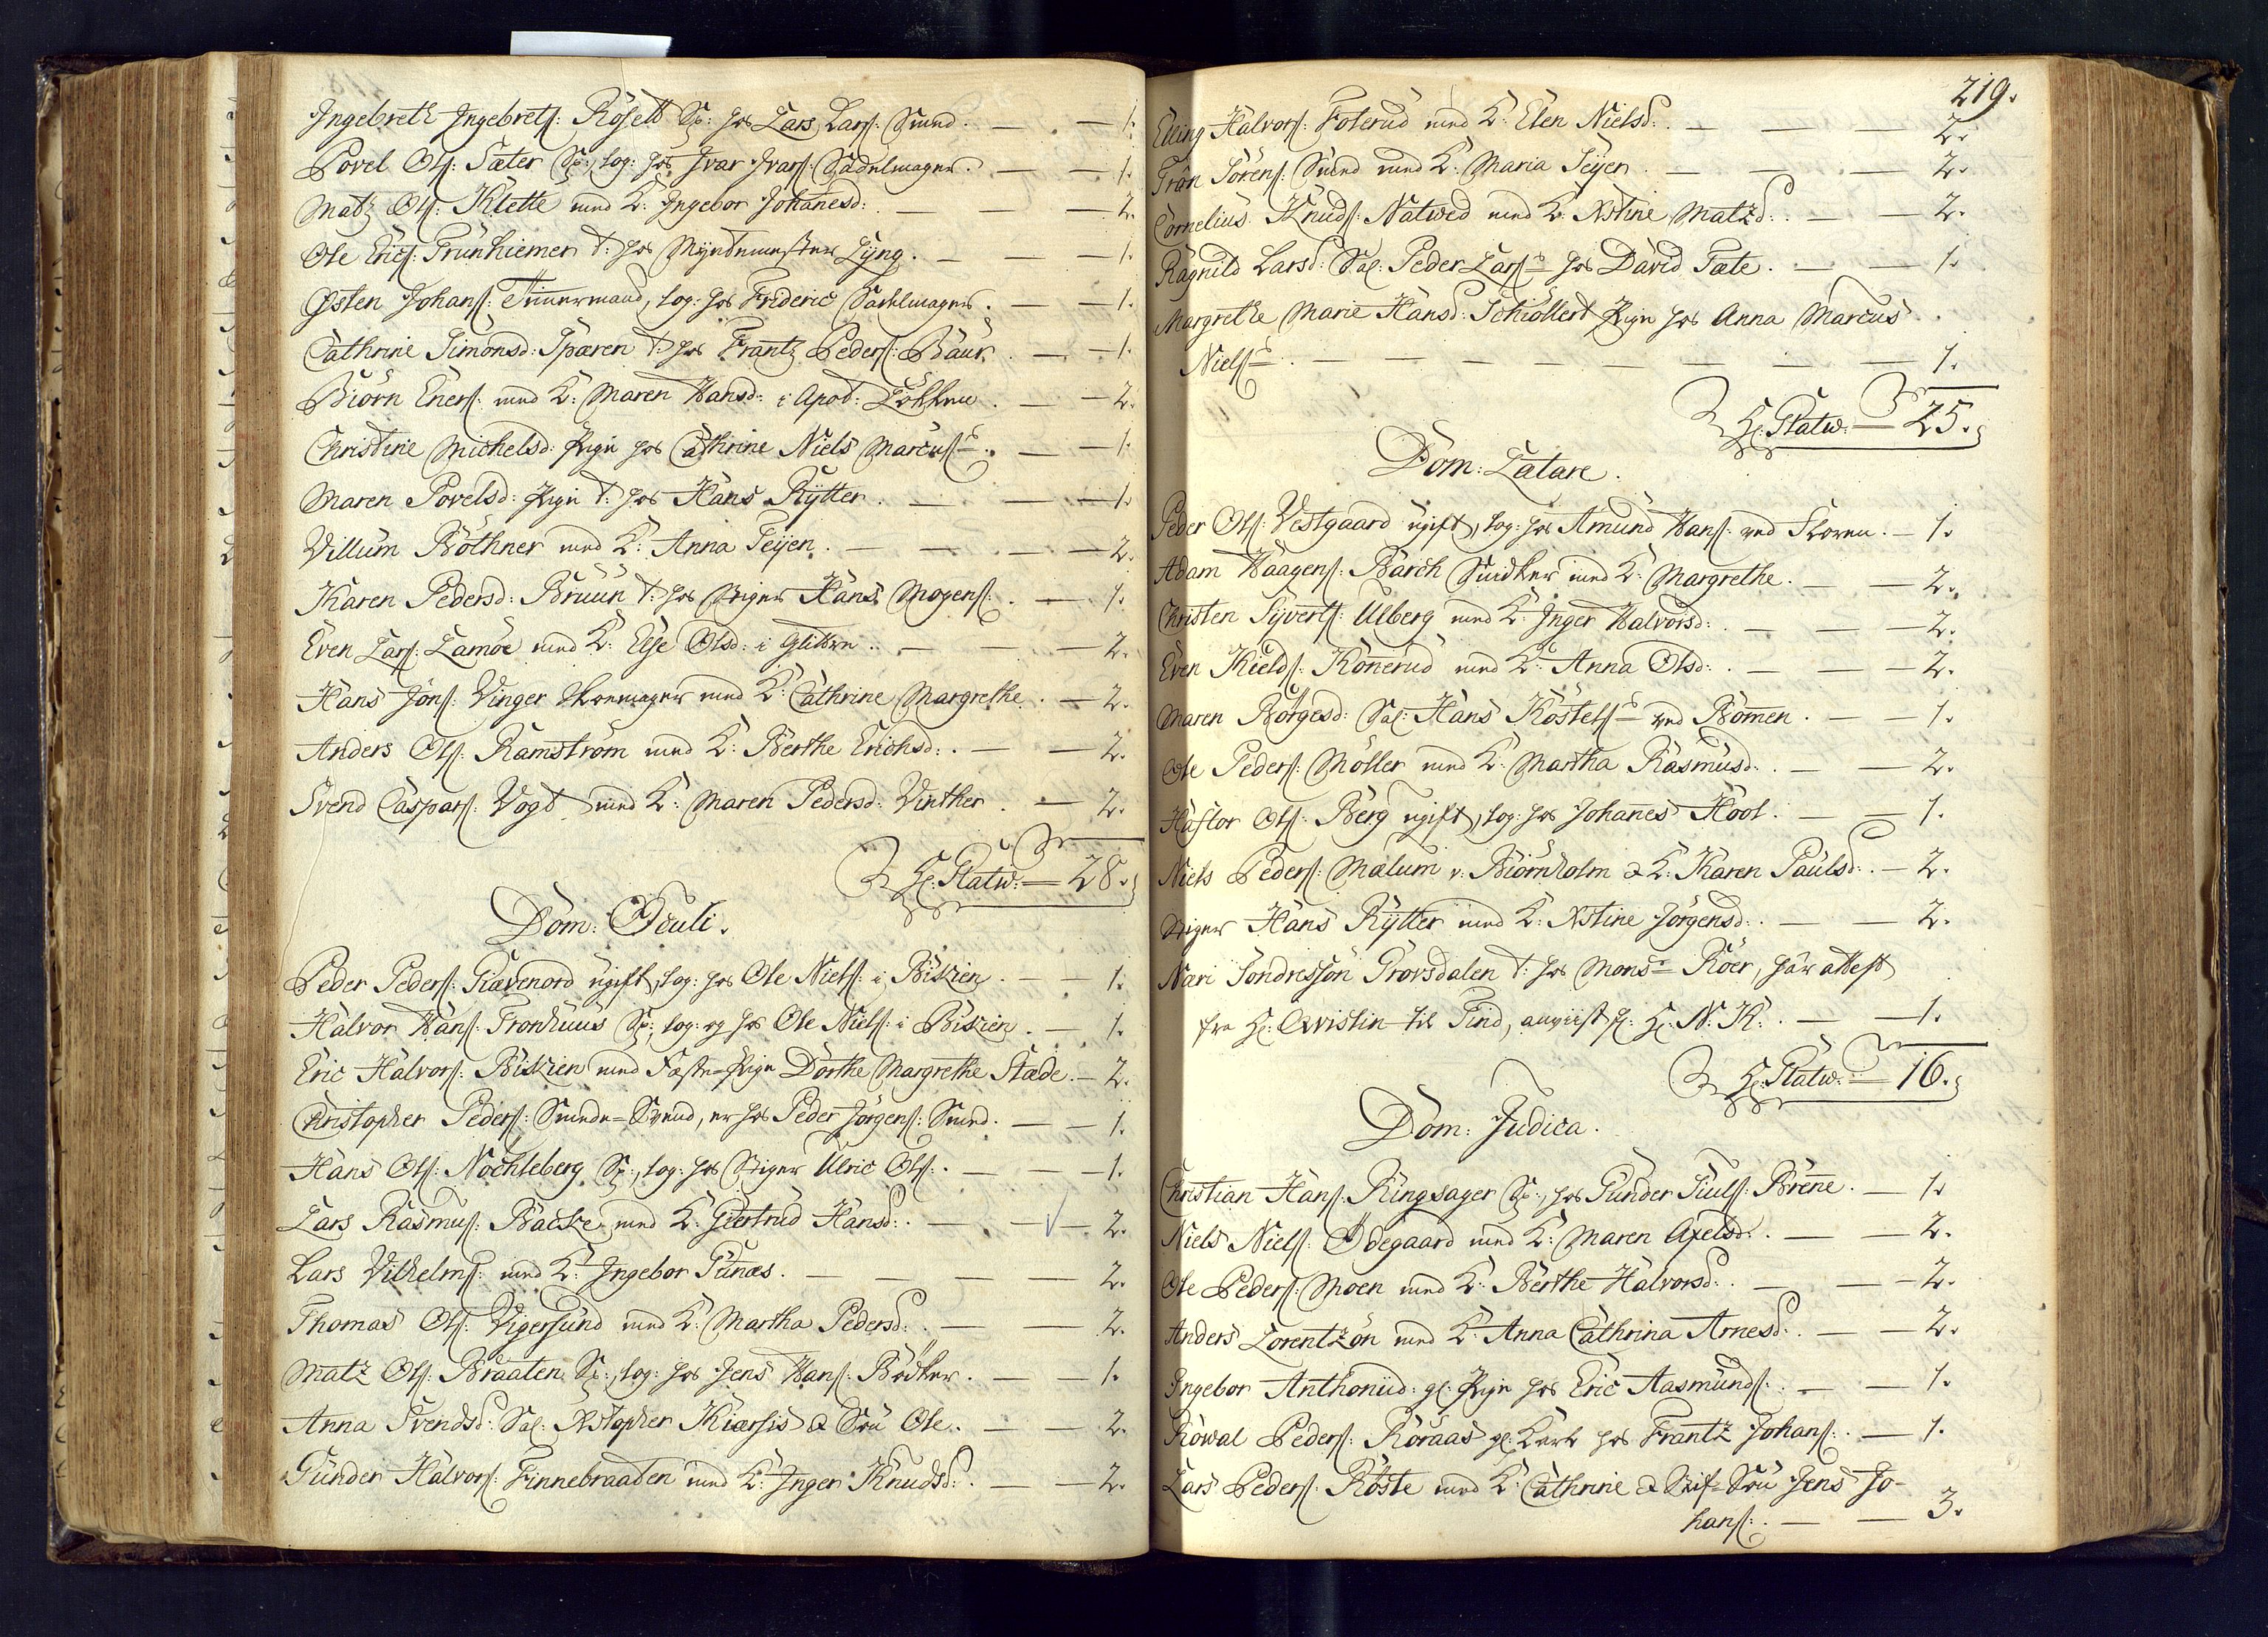 Ingebreth Ingebretſ: Röſett Sp: hos Lars Larſ: Smed. — 1.
Povel Olſ: Sæter Sp:, log: hos Ivar Ivarſ: Sadelmager. — 1.
Matz Olſ: Klette med K: Ingebor Johanesd: — 2.
Ole Ericſ: Trünhiemer t: hos Myndtmester Lÿng. — 1.
Østen Johanſ: Timmermand, log: hos Frideric Sadelmager. — 1.
Cathrine Simonsd: Sparen t: hos Frantz Pederſ: Baur. — 1.
Biörn Enerſ: med K: Maren Hansd: i Apod: Lökken. — 2.
Christine Michelsd: Pige hos Cathrine Niels Marcuſ — 1.
Maren Povelsd: Pige t: hos Hans Rytter. — 1.
Villum Böthner med K: Anna Seyen. — 2.
Karen Pedersd: Bruun t: hos Stiger Hans Mogenſ: — 1.
Even Larſ: Lamöe med K: Else Olsd: i Glitten. — 2.
Hans Jonſ: Vinger Skoemager med K: Cathrine Margrethe. — 2.
Anders Olſ: Ramström med K: Berthe Erichsd: — 2.
Svend Casparſ: Vogt med K: Maren Pedersd: Vinther. — 2.
H: Platw: — 28.
Dom: Oculi.
Peder Pederſ: Giævenord ugift, log: hos Ole Nielſ: i Bikien. — 1.
Halvor Hanſ: Tronhuus Sp:, log: og hos Ole Nielſ: i Bikien. — 1.
Eric Halvorſ: Bikien med Fæste-Pige Dorthe Margrethe Stæde. — 2.
Christopher Pederſ: Smede-Svend, er hos Peder Jörgenſ: Smed. — 1.
Hans Olſ: Nochleberg Sp:, log: hos Stiger Ulric Olſ: — 1.
Lars Rasmuſ: Backe med K: Giertrud Hansd: — 2.
Lars Vilhelmſ: med K: Ingebor Punæs. — 2.
Thomas Olſ: Vigersund med K: Martha Pedersd: — 2.
Matz Olſ: Braaten Sp:, log: hos Jens Hanſ: Bødker. — 1.
Anna Svendsd: Sal: Xstopher Kiærsis & Sön Ole. — 2.
Gunder Halvorſ: Finnebraaten med K: Inger Knudsd: — 2.
219.
Elling Halvorſ: Foterud med K: Elen Nielsd: — 2.
Tron Sörenſ: Smed med K: Maria Seyer. — 2.
Cornelius Knudſ: Natwed med K: Xstine Matzd: — 2.
Ragnild Larsd: Sal: Peder Larſ hos David Tate. — 1.
Margrethe Marie Hansd: Schiöllert Pige hos Anna Marcus
Nielſ — 1.
H: Platw: — 25.
Dom: Lætare.
Peder Olſ: Vestgaard ugift, log: hos Amund Hanſ: ved Skoven. — 1.
Adam Haagenſ: Barch Snidker med K: Margrethe. — 2.
Christen Syvertſ: Ulberg med K: Inger Halvorsd: — 2.
Even Kieldſ: Konerud med K: Anna Olsd: — 2.
Maren Börgesd: Sal: Hans Köstelſ ved Bomen. — 1.
Ole Pederſ: Möller med K: Martha Rasmusd: — 2.
Haftor Olſ: Berg ugift, log: hos Johanes Hool. — 1.
Niels Pederſ: Mælum v: Biörnholm & K: Karen Paulsd: — 2.
Stiger Hans Rytter med K: Xstine Jörgensd: — 2.
Næri Sondressøn Grovsdalen t: hos Monsr Röer, har attest
fra H: Qvistin til Tind, anviist fr: H: N: K: — 1.
H: Platw: — 16.
Dom: Judica.
Christian Hanſ: Ringsager Sp:, hos Gunder Giulſ: Brene. — 1.
Niels Nielſ: Ødegaard med K: Maren Axelsd: — 2.
Ole Pederſ: Moen med K: Berthe Halvorsd: — 2.
Anders Lorentzøn med K: Anna Cathrina Arnesd: — 2.
Ingebor Anthoniid: gl: Pige hos Eric Aasmundſ: — 1.
Röwal Pederſ: Röraas gl: Karl hos Frantz Johanſ: — 1.
Lars Pederſ: Röste med K: Cathrine & Stif-Sön Jens Jo-
hanſ: — 3.